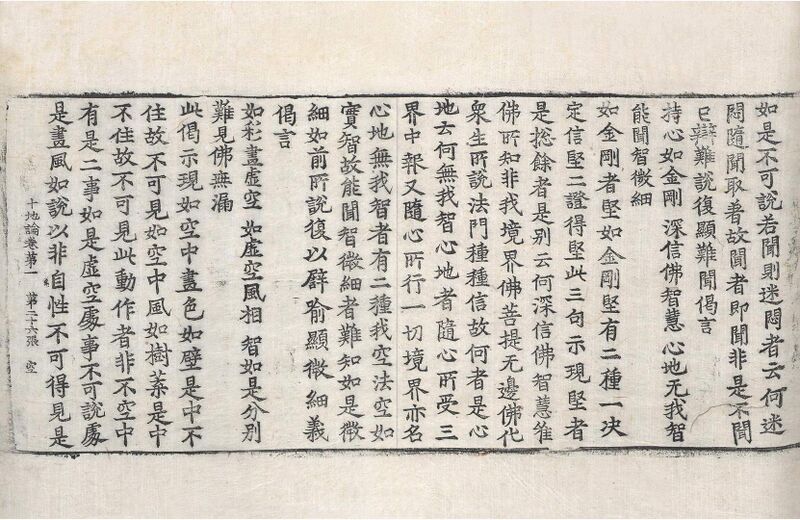 如是不可說若聞則迷悶者云何迷
悶隨聞取著故聞者即聞非是不聞
已辯難說復顯難聞偈言
持心如金剛 深信佛智慧 心地无我智
能聞智微細
如金剛者堅如金剛堅有二種一決
定信堅二證得堅此三句示現堅者
是捴餘者是別云何深信佛智慧唯
佛所知非我境界佛菩提无邊佛代
衆生所說法門種種信故何者是心
地云何無我智心地者隨心所受三
界中報又隨心所行一切境界亦名
心地無我智者有二種我空法空如
實智故能聞智微細者難知如是微
細如前所說復以譬喻顯微細義
偈言
如彩畫虛空 如虛空風相 智如是分別
難見佛無漏
此偈示現如空中畫色如壁是中不
住故不可見如空中風如樹葉是中
不住故不可見此動作者非不空中
有是二事如是虛空處事不可說處
是畫風如說以非自性不可得見是
十地論卷第一 第二十六張 空